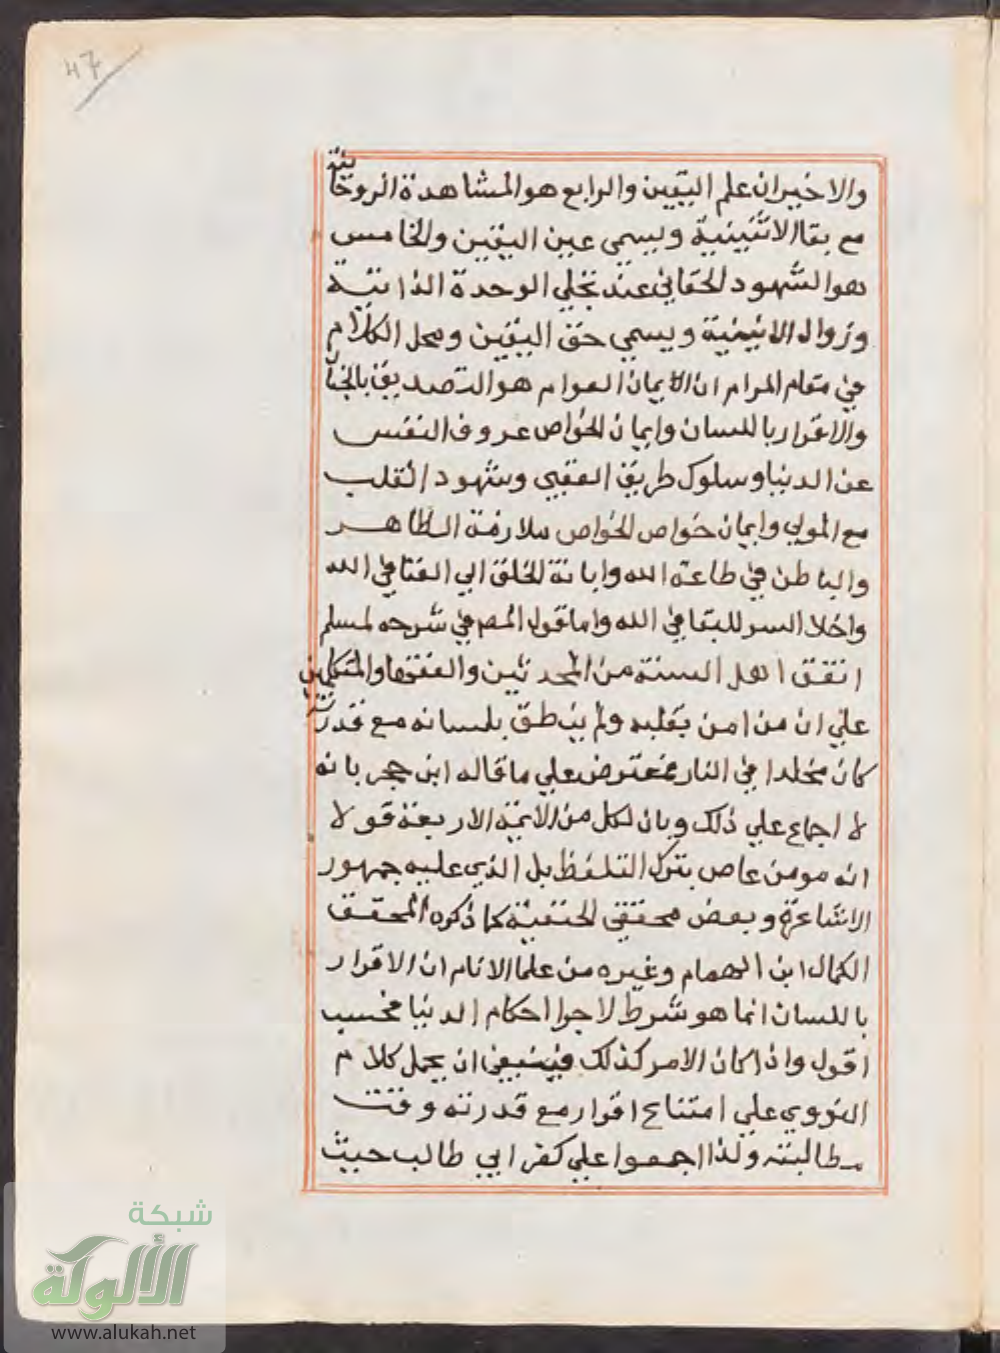 47
والاخيران علم اليقين والرابع هو المشاهدة الروحانية
مع بقا الاثنينية ويسمي عين اليقين والخامس
هو الشهود الحقاني عند تجلي الوحدة الذاتية
وزوال الاثنينية ويسمي حق اليقين ومحل الكلام
في مقام المرام ان الايمان العوام هو التصديق بالجنان
والاقرار باللسان وايمان الخواص عزوف النفس
عن الدنيا وسلوك طريق العقبي وشهود القلب
مع المولي وايمان خواص الخواص ملازمة الظاهر
والباطن في طاعة الله وانابة الخلق الي الفنا في الله
واخلا السر للبقا في الله واما قول المصم في شرحه لمسلم
اتفق اهل السنة من المحدثين والفقها والمتكلمين
علي ان من امن بقلبه ولم ينطق بلسانه مع قدرته
كان مخلدا في النار فمعترض علي ما قاله ابن حجر بانه
لا اجماع علي ذلك وبان لكل من الايمة الاربعة قولا
انه مومن عاص بترك التلفظ بل الذي عليه جمهور
الاشاعرة وبعض محققي الحنفية كما ذكره المحقق
الكمال ابن الهمام وغيره من علما الانام ان الاقرار
باللسان انما هو شرط لاجرا احكام الدنيا فحسب
اقول واذا كان الامر كذلك فينبغي ان يحمل كلام
النووي علي امتناع اقرار مع قدرته وقت
مطالبته ولذا اجمعوا علي كفر ابي طالب حيث
شبكة
الألوكة
www.alukah.net